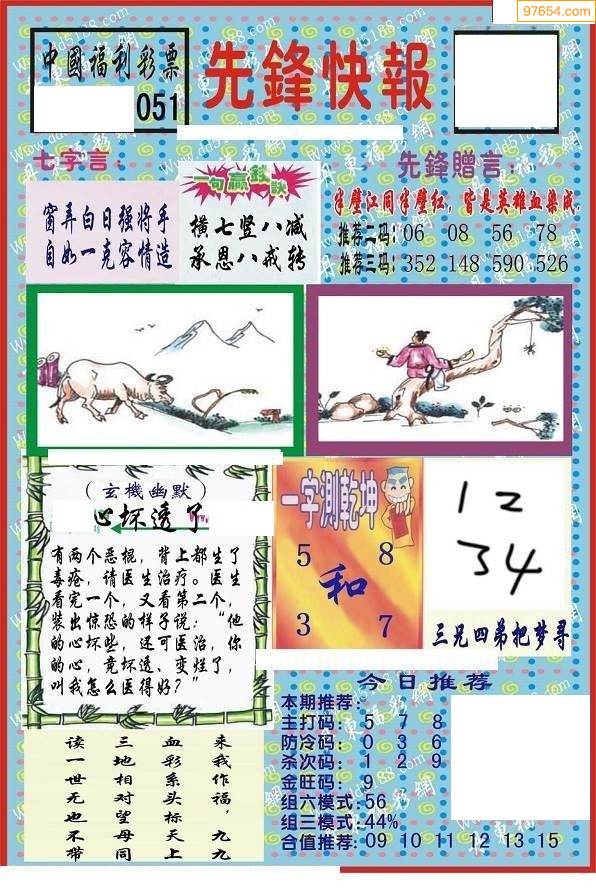 97654.com
中國福利彩票
051
先鋒快報
七字言：
窗弄白日强將手
自如一克容情造
一句贏錢訣
橫七竖八减
承恩八戒转
先鋒贈言：
半壁江同半壁红，皆是英雄血染成．
推荐二码：06 08 56 78
推荐三码：352 148 590 526
（玄機幽默）
心坏透了
有两个恶棍，背上都生了
毒疮，请医生治疗。医生
看完一个，又看第二个，
装出惊恐的样子说：“他
的心坏些，还可医治，你
的心，竟坏透、变烂了，
叫我怎么医得好？”
一字測乾坤
5 8
和
3 7
12
34
三兄四弟把梦寻
今日推荐
本期推荐：
主打码： 5 7 8
防冷码： 0 3 6
杀次码： 1 2 9
金旺码： 9
组六模式：56
组三模式：44%
合值推荐：09 10 11 12 13 15
来我作福，九九
血彩系头标天上
三地相对望母同
读一世无也不带